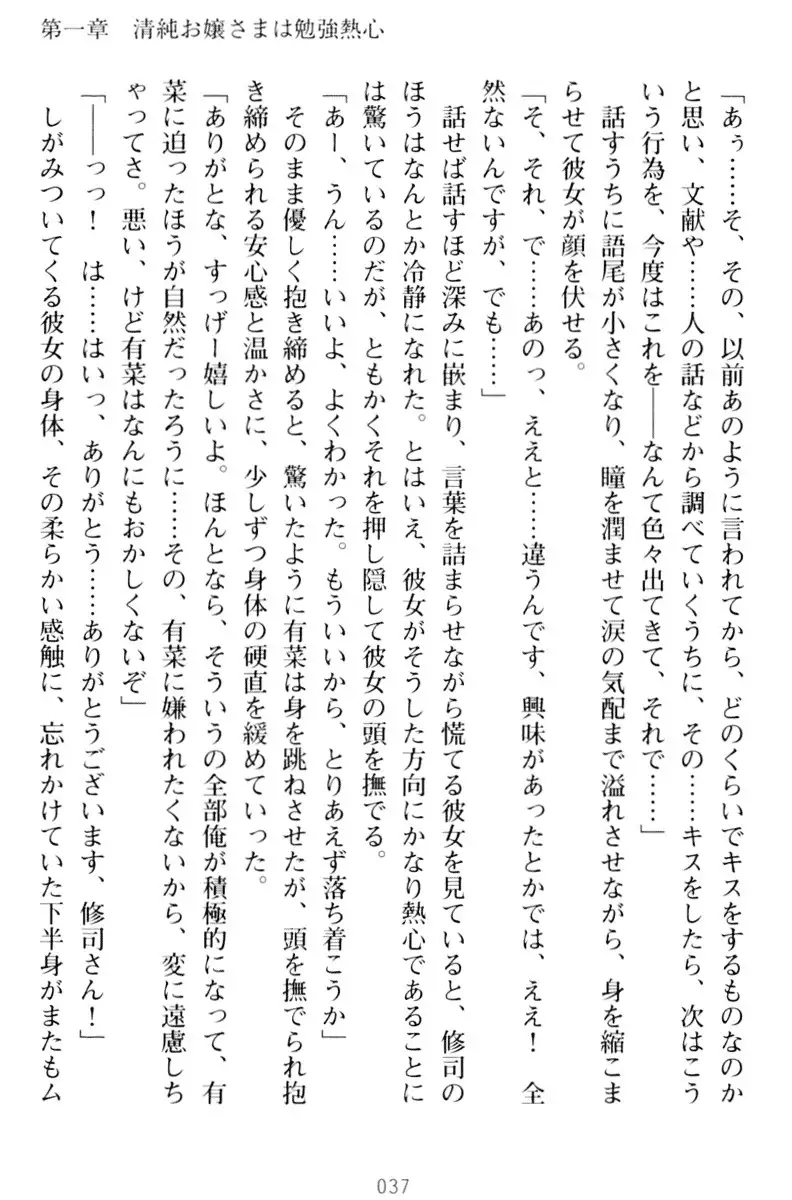 第一章　清純お嬢さまは勉強熱心
「あぅ……そ、その、以前あのように言われてから、どのくらいでキスをするものなのか
と思い、文献や……人の話などから調べていくうちに、その……キスをしたら、次はこう
いう行為を、今度はこれを――なんて色々出てきて、それで……」
　話すうちに語尾が小さくなり、瞳を潤ませて涙の気配まで溢れさせながら、身を縮こま
らせて彼女が顔を伏せる。
「そ、それ、で……あのっ、ええと……違うんです、興味があったとかでは、ええ！　全
然ないんですが、でも……」
　話せば話すほど深みに嵌まり、言葉を詰まらせながら慌てる彼女を見ていると、修司の
ほうはなんとか冷静になれた。とはいえ、彼女がそうした方向にかなり熱心であることに
は驚いているのだが、ともかくそれを押し隠して彼女の頭を撫でる。
「あー、うん……いいよ、よくわかった。もういいから、とりあえず落ち着こうか」
　そのまま優しく抱き締めると、驚いたように有菜は身を跳ねさせたが、頭を撫でられ抱
き締められる安心感と温かさに、少しずつ身体の硬直を緩めていった。
「ありがとな、すっげー嬉しいよ。ほんとなら、そういうの全部俺が積極的になって、有
菜に迫ったほうが自然だったろうに……その、有菜に嫌われたくないから、変に遠慮しち
ゃってさ。悪い、けど有菜はなんにもおかしくないぞ」
「――っっ！　は……はいっ、ありがとう……ありがとうございます、修司さん！」
　しがみついてくる彼女の身体、その柔らかい感触に、忘れかけていた下半身がまたもム
037